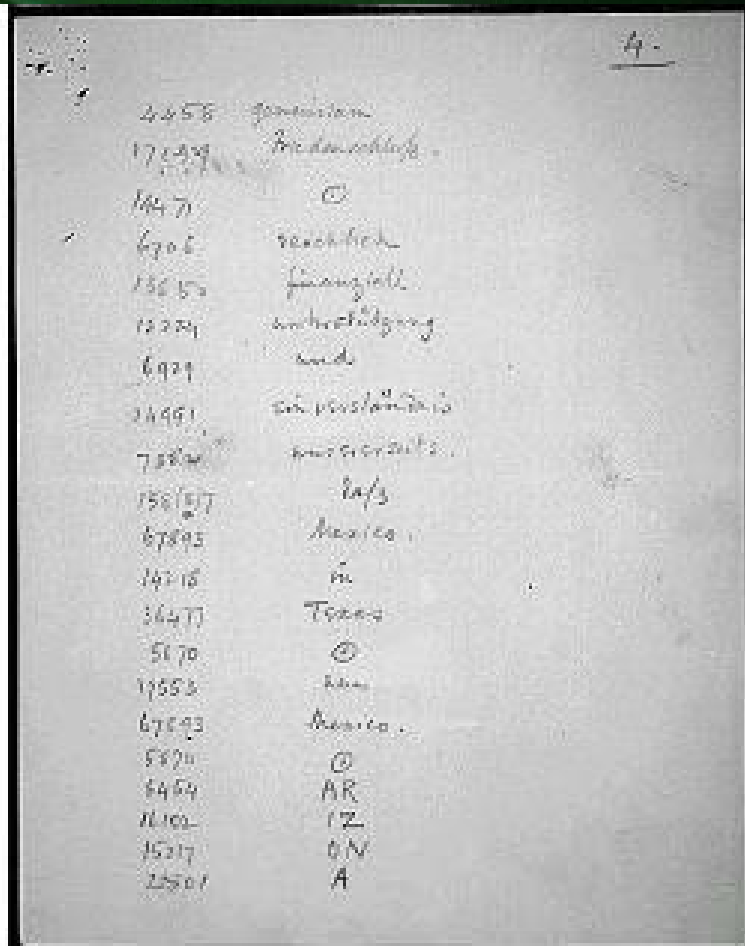 4.
4458 gemeinsam
17149 Friedenschluß.
14471 ⊙
6706 reichlich
13850 finanziell
12224 unterstützung
6929 und
14991 einverständnis
7382 unsrerseits.
158(5)7 daß
67893 Mexico.
14218 in
36477 Texas
5670 ⊙
17553 neu
67693 Mexico.
5870 ⊙
5454 AR
16102 IZ
15217 ON
22801 A